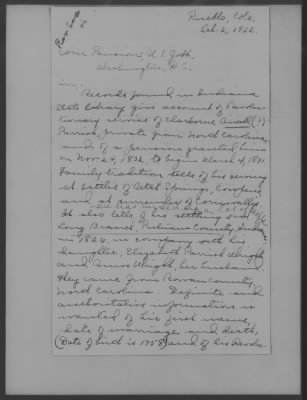 Pueblo, Colo.
Oct. 2, 1922.
Com Pensions, U. S. Govt.
Washington, D. C.
Sir:
Records found in Indiana
State Library give account of Revolu-
tionary services of
Parrish, private from North Carolina
and of a pension granted him
on Nov. 24, 1832, to begin March 4, 1831.
Family tradition tells of his serving
at battles of Utah Springs, Cowpens,
and at surrender of Cornwallis.
It also tells of his settling on
Long Branch, Putnam County, Indiana
in 1826, in company with his
daughter, Elizabeth Parrish Wright
and Amos Wright, her husband
They came from Rowan County,
North Carolina. Definite and
authoritative information is
wanted of his first name,
date of marriage and death,
(Date of birth is 1758) and of his Revolu-